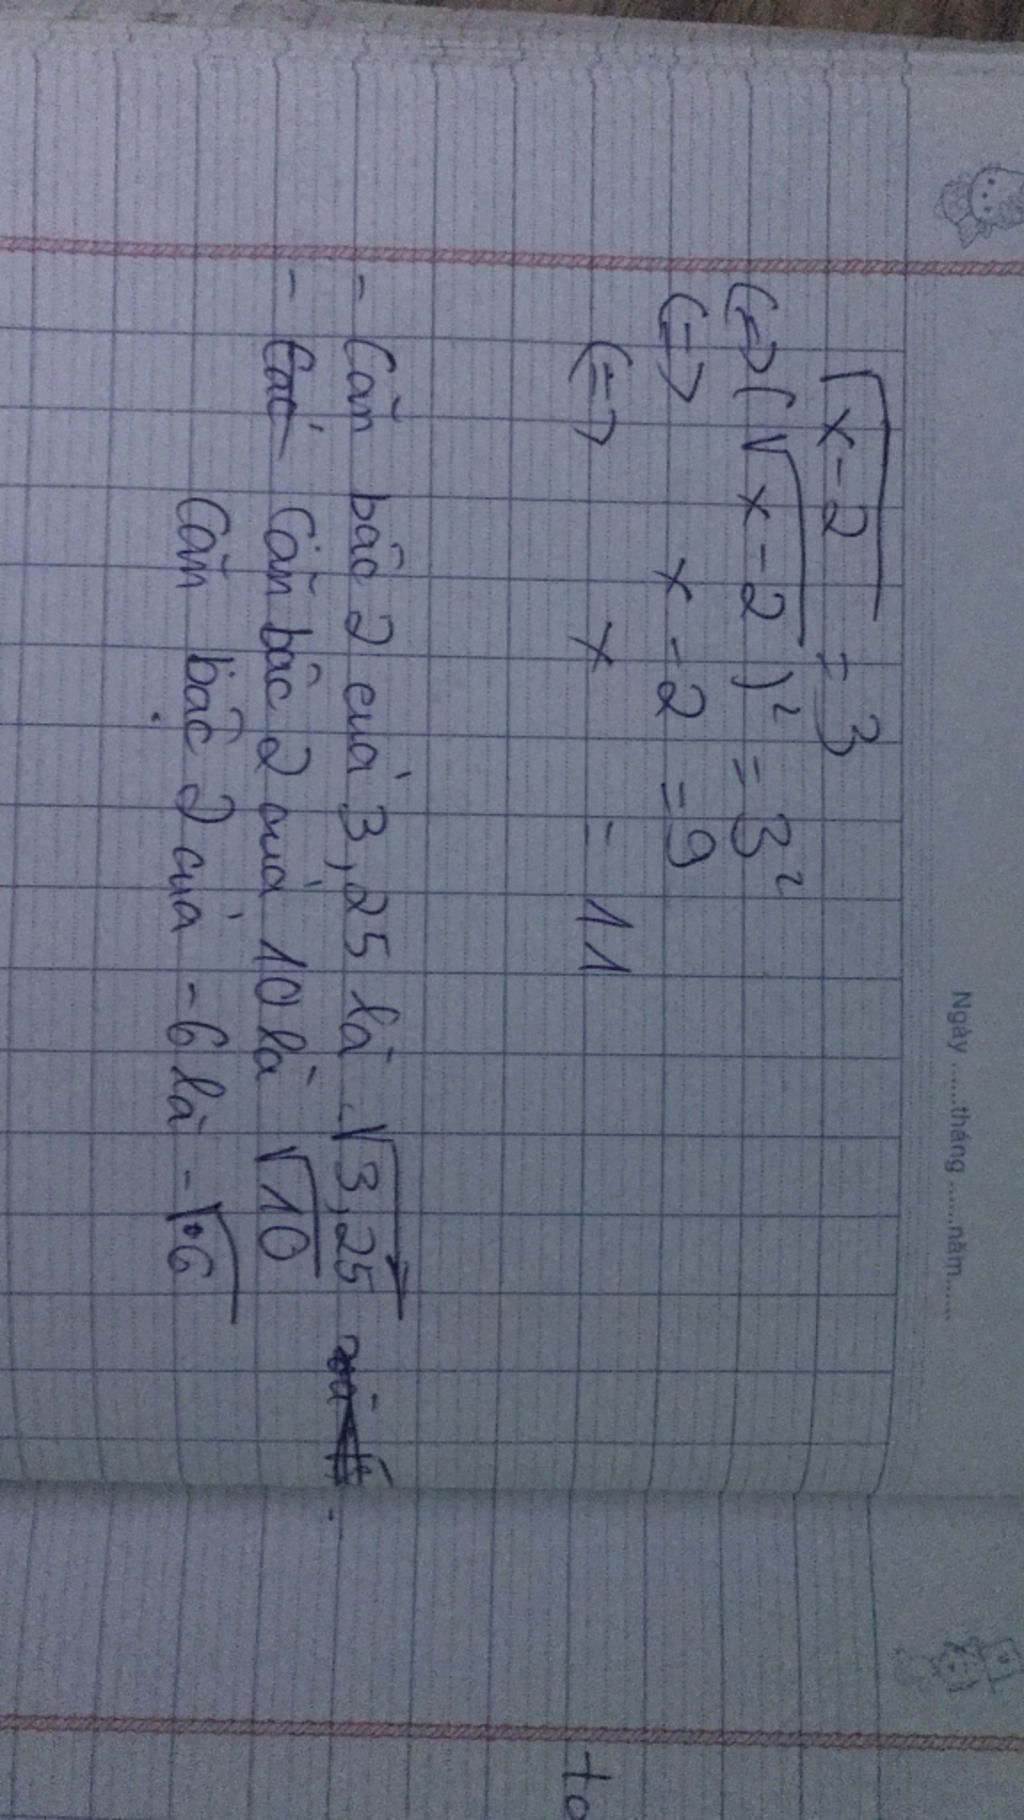 Ngày ......tháng ......năm......
√x-2 = 3
(=) (√x-2)² = 3²
(=) x - 2 = 9
(=) x = 11
- Căn bâc 2 cuả 3,25 là √3,25
- Các Căn bâc 2 cuả 10 là √10
Căn bâc 2 cuả -6 là -√6
to